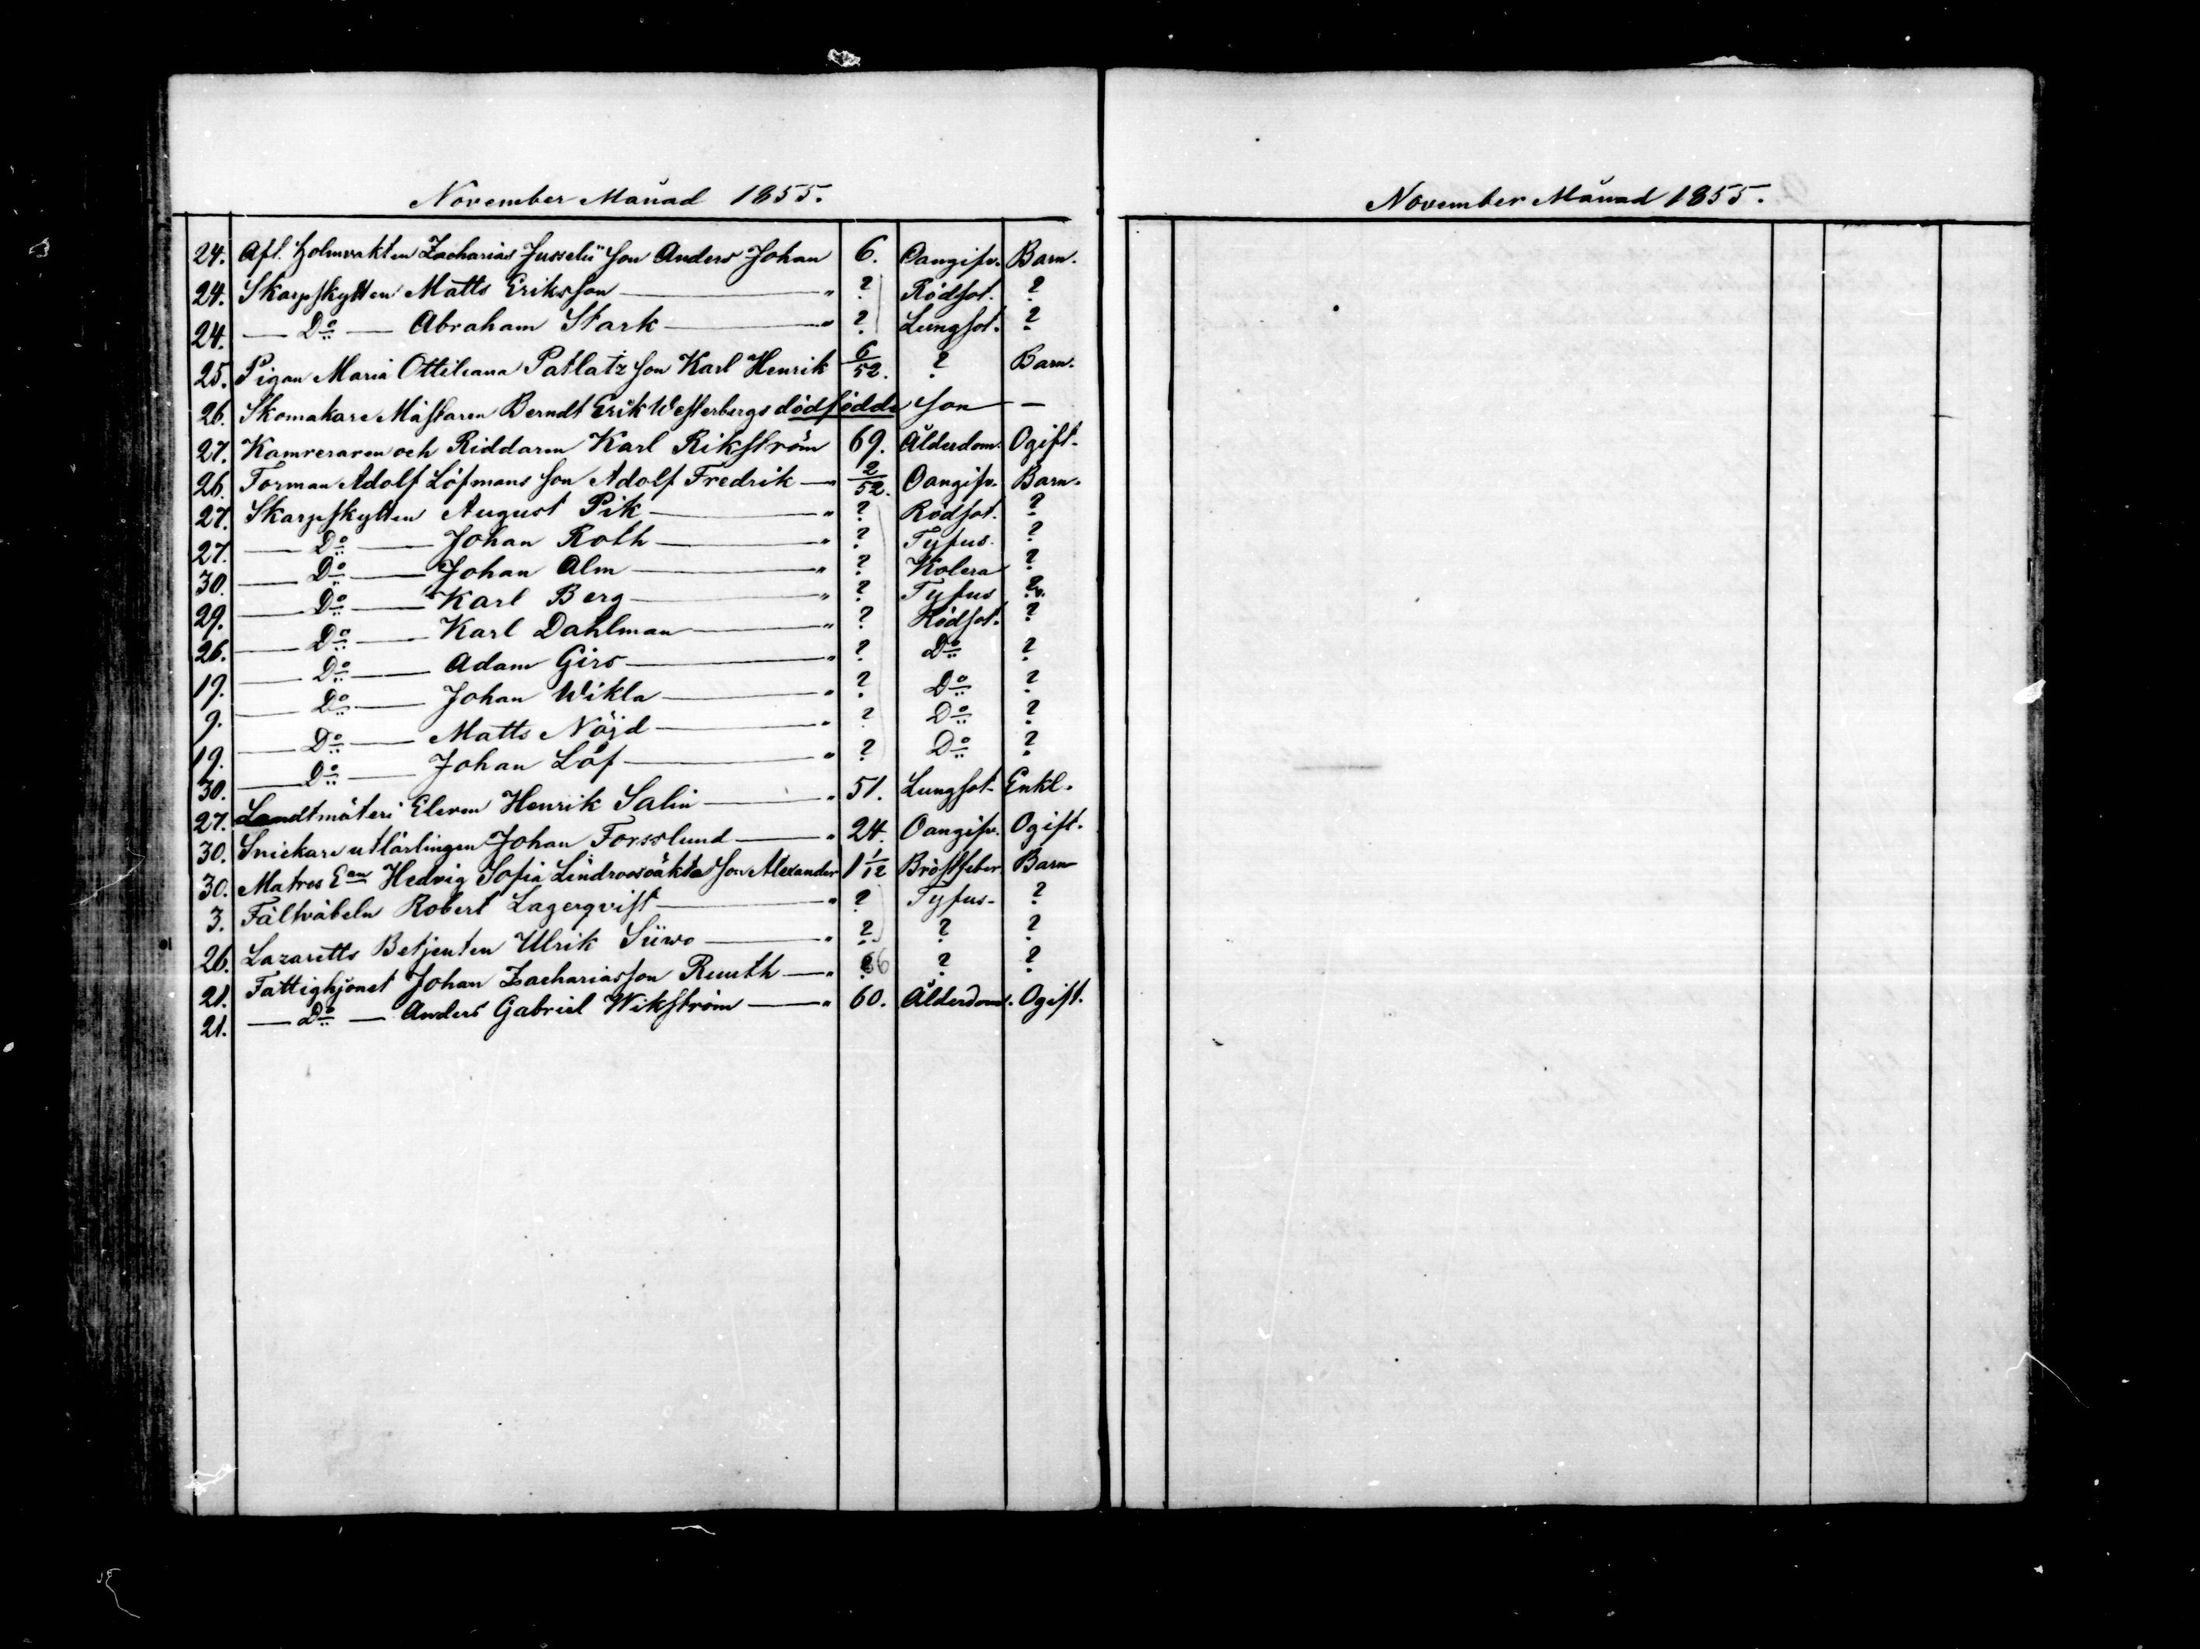 November Månad 1855.
24. Afl. Holmvakten Zacharias Jusselii Son Anders Johan 6. Oangifv. Barn.
24. Skarpskytten Matts Eriksson — " ? Rödsot. ?
24. — Do — Abraham Stark — " ? Lungsot. ?
25. Pigan Maria Ottiliana Patlatz Son Karl Henrik 6/52. ? Barn.
26. Skomakare Mästaren Berndt Erik Westerbergs dödfödde Son —
27. Kamreraren och Riddaren Karl Rikström 69. Ålderdom. Ogift.
26. Forman Adolf Löfmans Son Adolf Fredrik — 2/52. Oangifv. Barn.
27. Skarpskytten August Pik — " ? Rödsot. ?
27. — Do — Johan Roth — " ? Tyfus. ?
30. — Do — Johan Alm — " ? Kolera ?
29. — Do — Karl Berg — " ? Tyfus ?
26. — Do — Karl Dahlman — " ? Rödsot. ?
19. — Do — Adam Girs — " ? Do ?
9. — Do — Johan Wikla — " ? Do ?
19. — Do — Matts Nöjd — " ? Do ?
30. — Do — Johan Löf — " ? Do ?
27. Landtmäteri Eleven Henrik Salin — " 51. Lungsot. Enkl.
30. Snickare utlärlingen Johan Forsslund — " 24. Oangifv. Ogift.
30. Matros Ean Hedvig Sofia Lindroos oäkta Son Alexander 1 1/12 Bröstfeber Barn
3. Fältväbeln Robert Lagerqvist — " ? Tyfus. ?
26. Lazaretts Betjenten Ulrik Siiwo — " ? ? ?
21. Fattighjonet Johan Zachariasson Ruuth — " 66 ? ?
21. — Do — Anders Gabriel Wikström — " 60. Ålderdom. Ogift.
November Månad 1855.